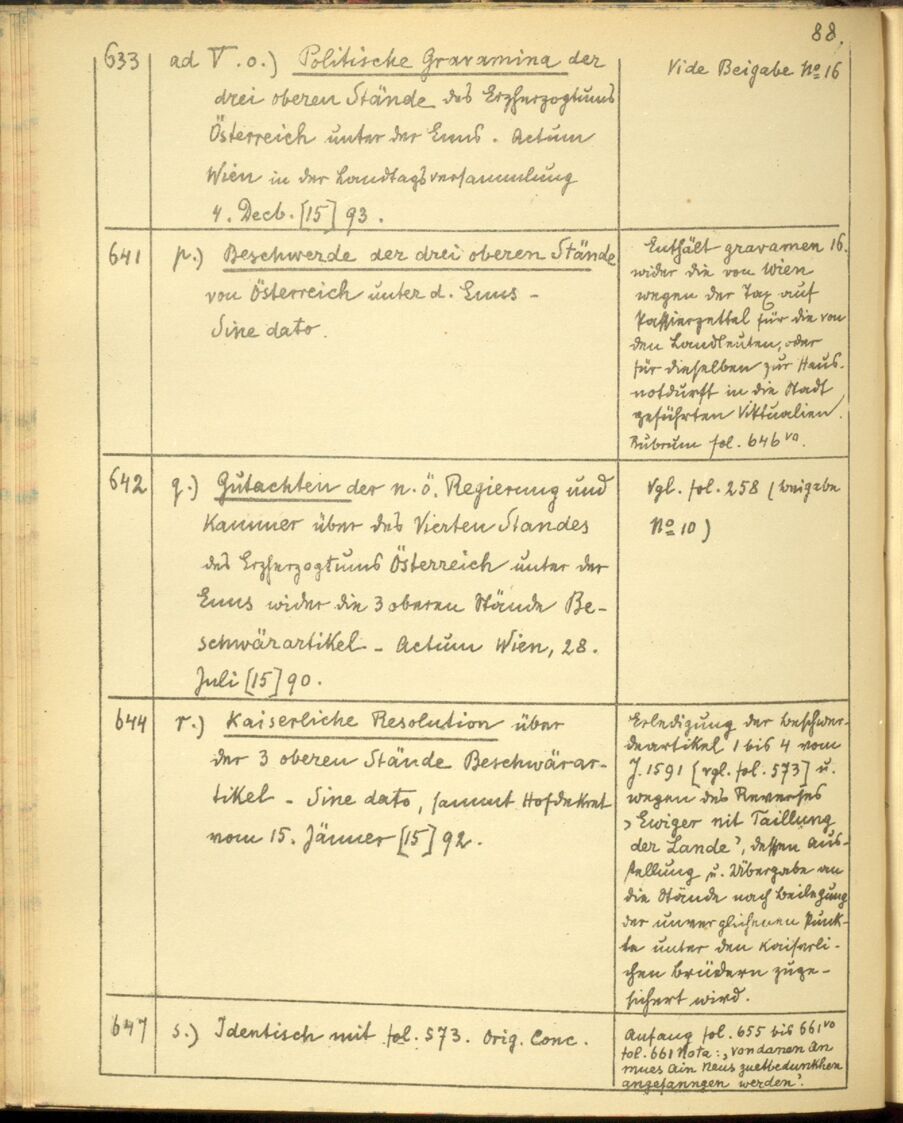 88.
633
ad V. o.) Politische Gravamina der
drei oberen Stände des Erzherzogtums
Österreich unter der Enns. Actum
Wien in der Landtagsversammlung
4. Decb. [15] 93.
Vide Beigabe No 16
641
p.) Beschwerde der drei oberen Stände
von Österreich unter d. Enns -
Sine dato.
Enthält gravamen 16.
wider die von Wien
wegen der Tax auf
Passierzettel für die von
den Landleuten, oder
für dieselben zur Haus-
notdurft in die Stadt
geführten Viktualien.
Rubrum fol. 646 vo.
642
q.) Gutachten der n. ö. Regierung und
Kammer über des Vierten Standes
des Erzherzogtums Österreich unter der
Enns wider die 3 oberen Stände Be-
schwärartikel - Actum Wien, 28.
Juli [15] 90.
Vgl. fol. 258 (Beigabe
No 10)
644
r.) Kaiserliche Resolution über
der 3 oberen Stände Beschwärar-
tikel - Sine dato, sammt Hofdekret
vom 15. Jänner [15] 92.
Erledigung der Beschwer-
deartikel 1 bis 4 vom
J. 1591 [vgl. fol. 573] u.
wegen des Reverses
"Ewiger nit Taillung
der Lande", dessen Aus-
stellung u. Übergabe an
die Stände nach Beilegung
der unverglichenen Punk-
te unter den Kaiserli-
chen Brüdern zuge-
sichert wird.
647
s.) Identisch mit fol. 573. Orig. Conc.
Anfang fol. 655 bis 661 vo
fol. 661 Nota: "von danen An
mues Ain Neus guetbedunkhen
angefanngen werden".